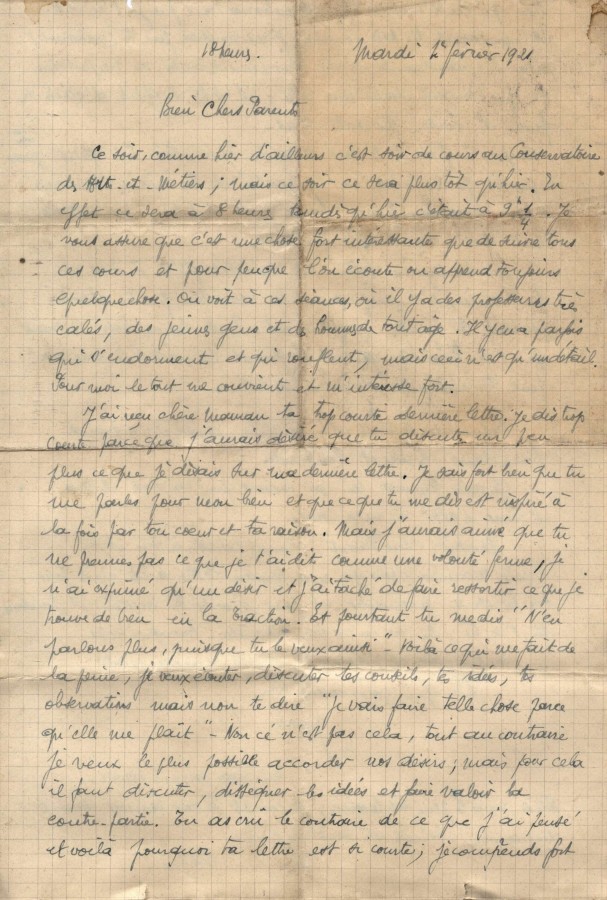 18 heures. Mardi 1er février 1921
Bien Chers Parents
Ce soir, comme hier d'ailleurs c'est soir de cours au Conservatoire
des Arts-et-Métiers; mais ce soir ce sera plus tôt qu'hier. En
effet ce sera à 8 heures tandis qu'hier c'était à 9h 1/4. Je
vous assure que c'est une chose fort intéressante que de suivre tous
ces cours et pour peu que l'on écoute on apprend toujours
quelque chose. On voit à ces séances, où il y a des professeurs très
calés, des jeunes gens et des hommes de tout âge. Il y en a parfois
qui s'endorment et qui ronflent, mais ceci n'est qu'un détail.
Pour moi le tout me convient et m'intéresse fort.
J'ai reçu chère maman ta trop courte dernière lettre. Je dis trop
courte parce que j'aurais désiré que tu discutes un peu
plus ce que je disais sur ma dernière lettre. Je sais fort bien que tu
me parles pour mon bien et que ce que tu me dis est inspiré à
la fois par ton coeur et ta raison. Mais j'aurais aimé que tu
ne prennes pas ce que je t'ai dit comme une volonté ferme, je
n'ai exprimé qu'un désir et j'ai tâché de faire ressortir ce que je
trouve de bien en la Traction. Et pourtant tu me dis "N'en
parlons plus, puisque tu le veux ainsi" - Voilà ce qui me fait de
la peine, je veux écouter, discuter tes conseils, tes idées, tes
observations mais non te dire "Je vais faire telle chose parce
qu'elle me plaît" - Non ce n'est pas cela, tout au contraire
je veux le plus possible accorder nos désirs; mais pour cela
il faut discuter, disséquer les idées et faire valoir la
contre-partie. Tu as cru le contraire de ce que j'ai pensé
et voilà pourquoi ta lettre est si courte; je comprends fort